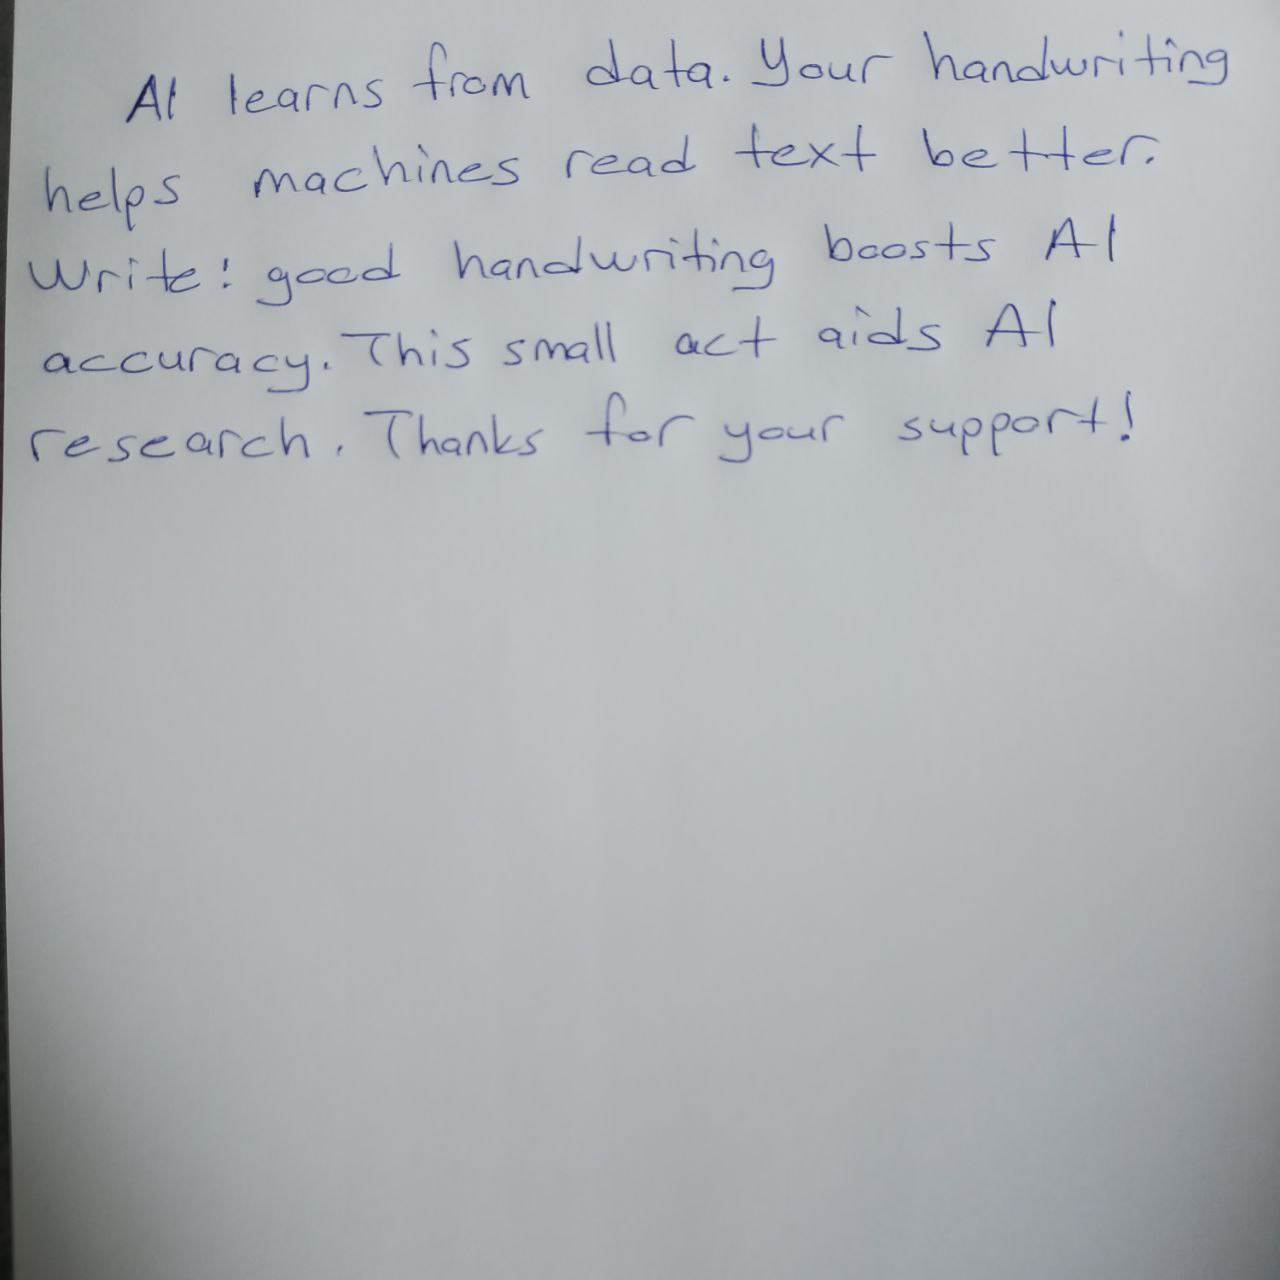 AI learns from data. Your handwriting
helps machines read text better.
Write! good handwriting boosts AI
accuracy. This small act aids AI
research. Thanks for your support!